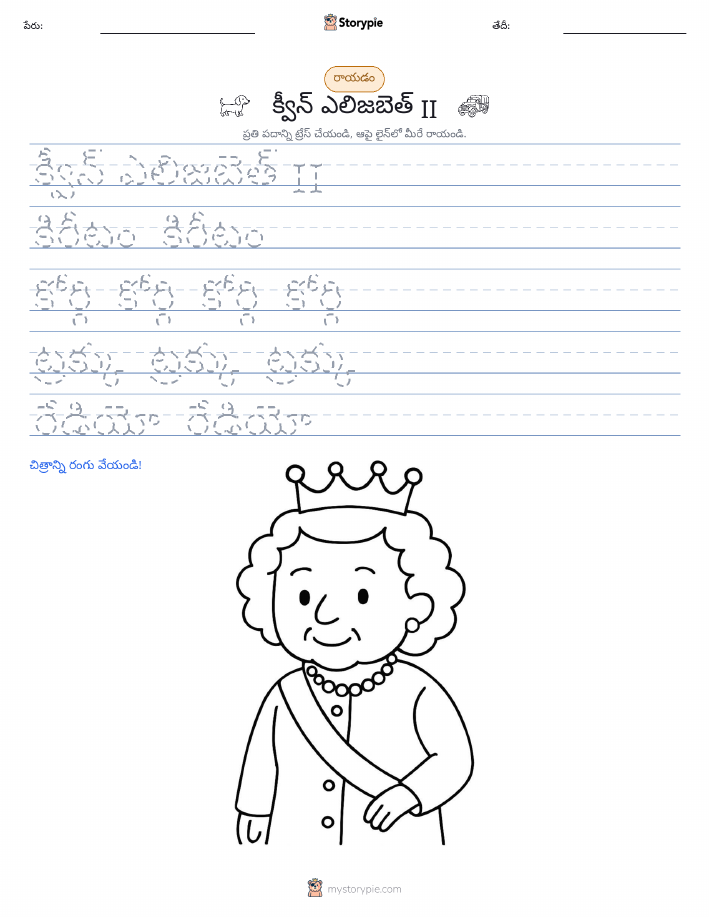 పేరు:
Storypie
తేదీ:
రాయడం
క్వీన్ ఎలిజబెత్ II
ప్రతి పదాన్ని ట్రేస్ చేయండి, ఆపై లైన్‌లో మీరే రాయండి.
క్వీన్ ఎలిజబెత్ II
కిరీటం కిరీటం
కోర్గి కోర్గి కోర్గి కోర్గి
ట్రక్కు ట్రక్కు ట్రక్కు
రేడియో రేడియో
చిత్రాన్ని రంగు వేయండి!
mystorypie.com